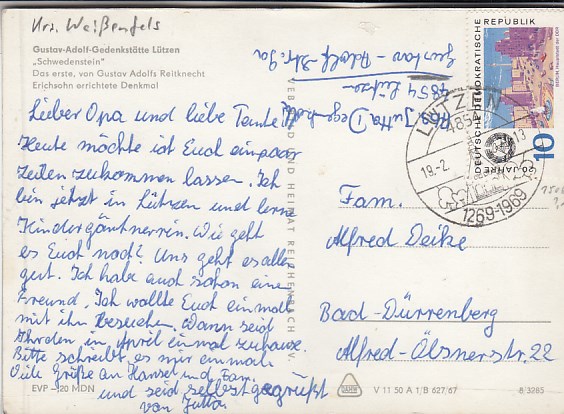 Krs. Weißenfels
Gustav-Adolf-Gedenkstätte Lützen
„Schwedenstein"
Das erste, von Gustav Adolfs Reitknecht
Erichsohn errichtete Denkmal
Lieber Opa und liebe Tante!
Heute möchte ich Euch ein paar
Zeilen zukommen lassen. Ich
bin jetzt in Lützen und lerne
Kindergärtnerin. Wie geht
es Euch noch? Uns geht es allen
gut. Ich habe auch schon einen
Freund. Ich wollte Euch einmal
mit ihn besuchen. Wann seid
Ihr den im April einmal zuhause.
Bitte schreibt es mir einmal
Viele Grüße an Hansel und Fam.
und seid selbst gegrüßt
von Jutta
EVP –20 MDN
Jutta
4854 Lützen
Gustav-Adolf-Str. 9a
BILD UND HEIMAT REICHENBACH I. V.
V 11 50 A 1/B 627/67
8/3285
DEUTSCHE DEMOKRATISCHE REPUBLIK
20 JAHRE DDR
10
LÜTZEN
4854
19.-2.
13
1269-1969
Fam.
Alfred Deike
Bad-Dürrenberg
Alfred-Ölsner str. 22